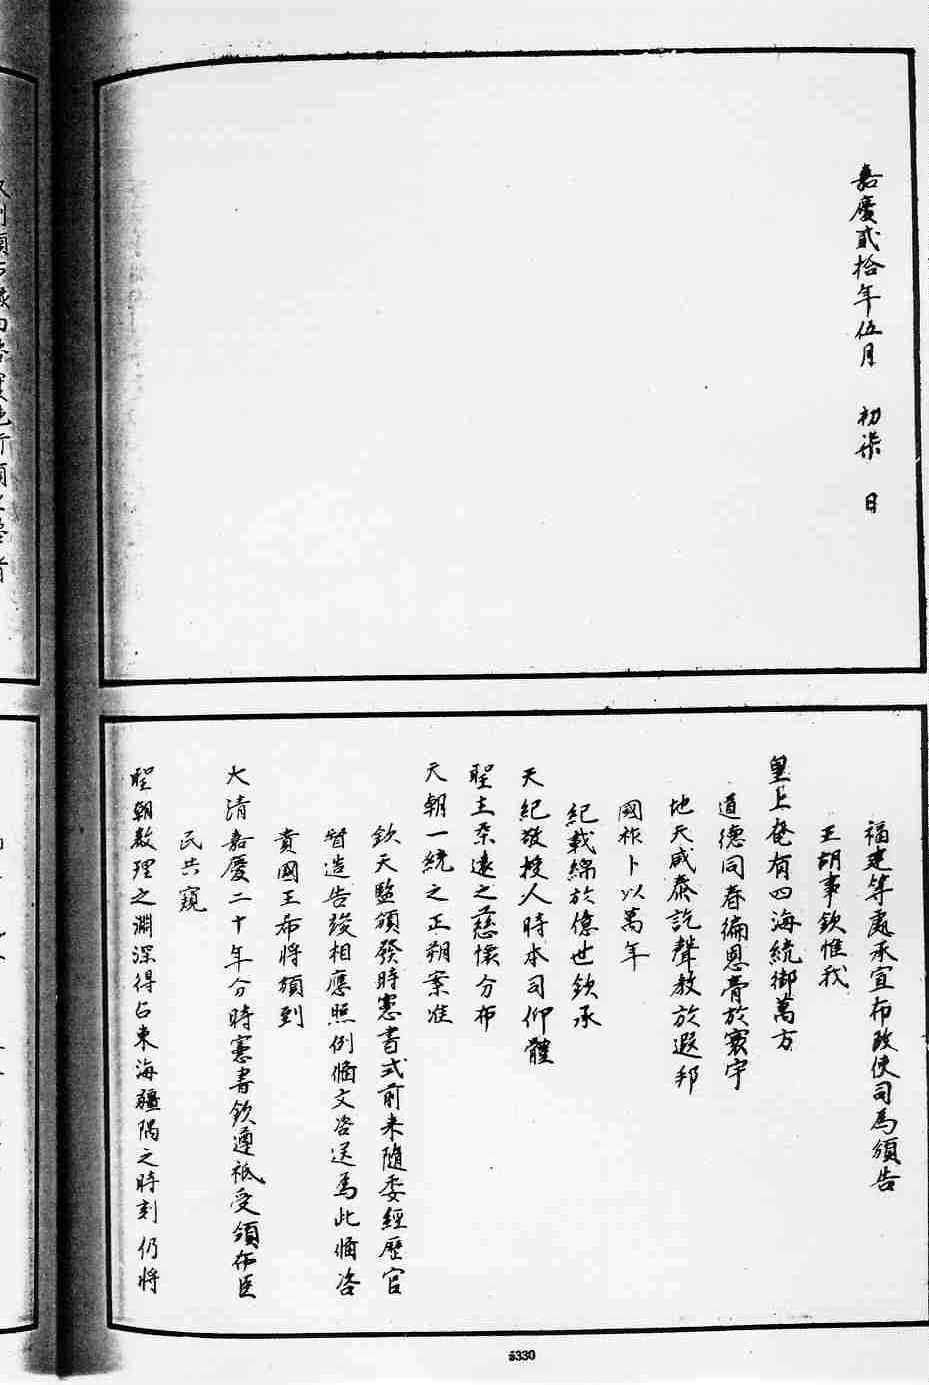 嘉慶貳拾年伍月 初柒 日
福建等處承宣布政使司為頒告
王朔事欽惟我
皇上奄有四海統御萬方
道德同春徧恩膏於寰宇
地天咸泰訖聲教於遐邦
國祚卜以萬年
紀載綿於億世欽承
天紀敬授人時本司仰體
聖主柔遠之慈懷分布
天朝一統之正朔案准
欽天監頒發時憲書式前来隨委經歷官
督造告竣相應照例備文咨送為此備咨
貴國王希將頒到
大清嘉慶二十年分時憲書欽遵祗受頒布臣
民共窺
聖朝教理之淵深得占東海疆隅之時刻仍將
5330